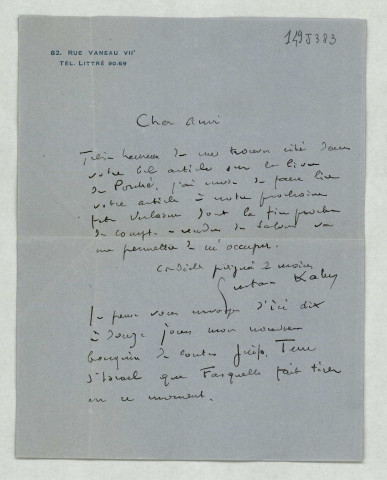 149J383
82, RUE VANEAU VIIᵉ
TÉL. LITTRÉ 90.69
Cher ami
Très heureux de me trouver cité dans
votre bel article sur le livre
de Porché, j'ai envie de faire lire
votre article à notre prochaine
fête Verlaine dont la fin proche
de compte-rendus de Salons va
me permettre de m'occuper.
Cordiale poignée de mains
Gustave Kahn
Je pense vous envoyer d'ici dix
à douze jours mon nouveau
bouquin de contes juifs, Terre
d'Israël que Fasquelle fait tirer
en ce moment.